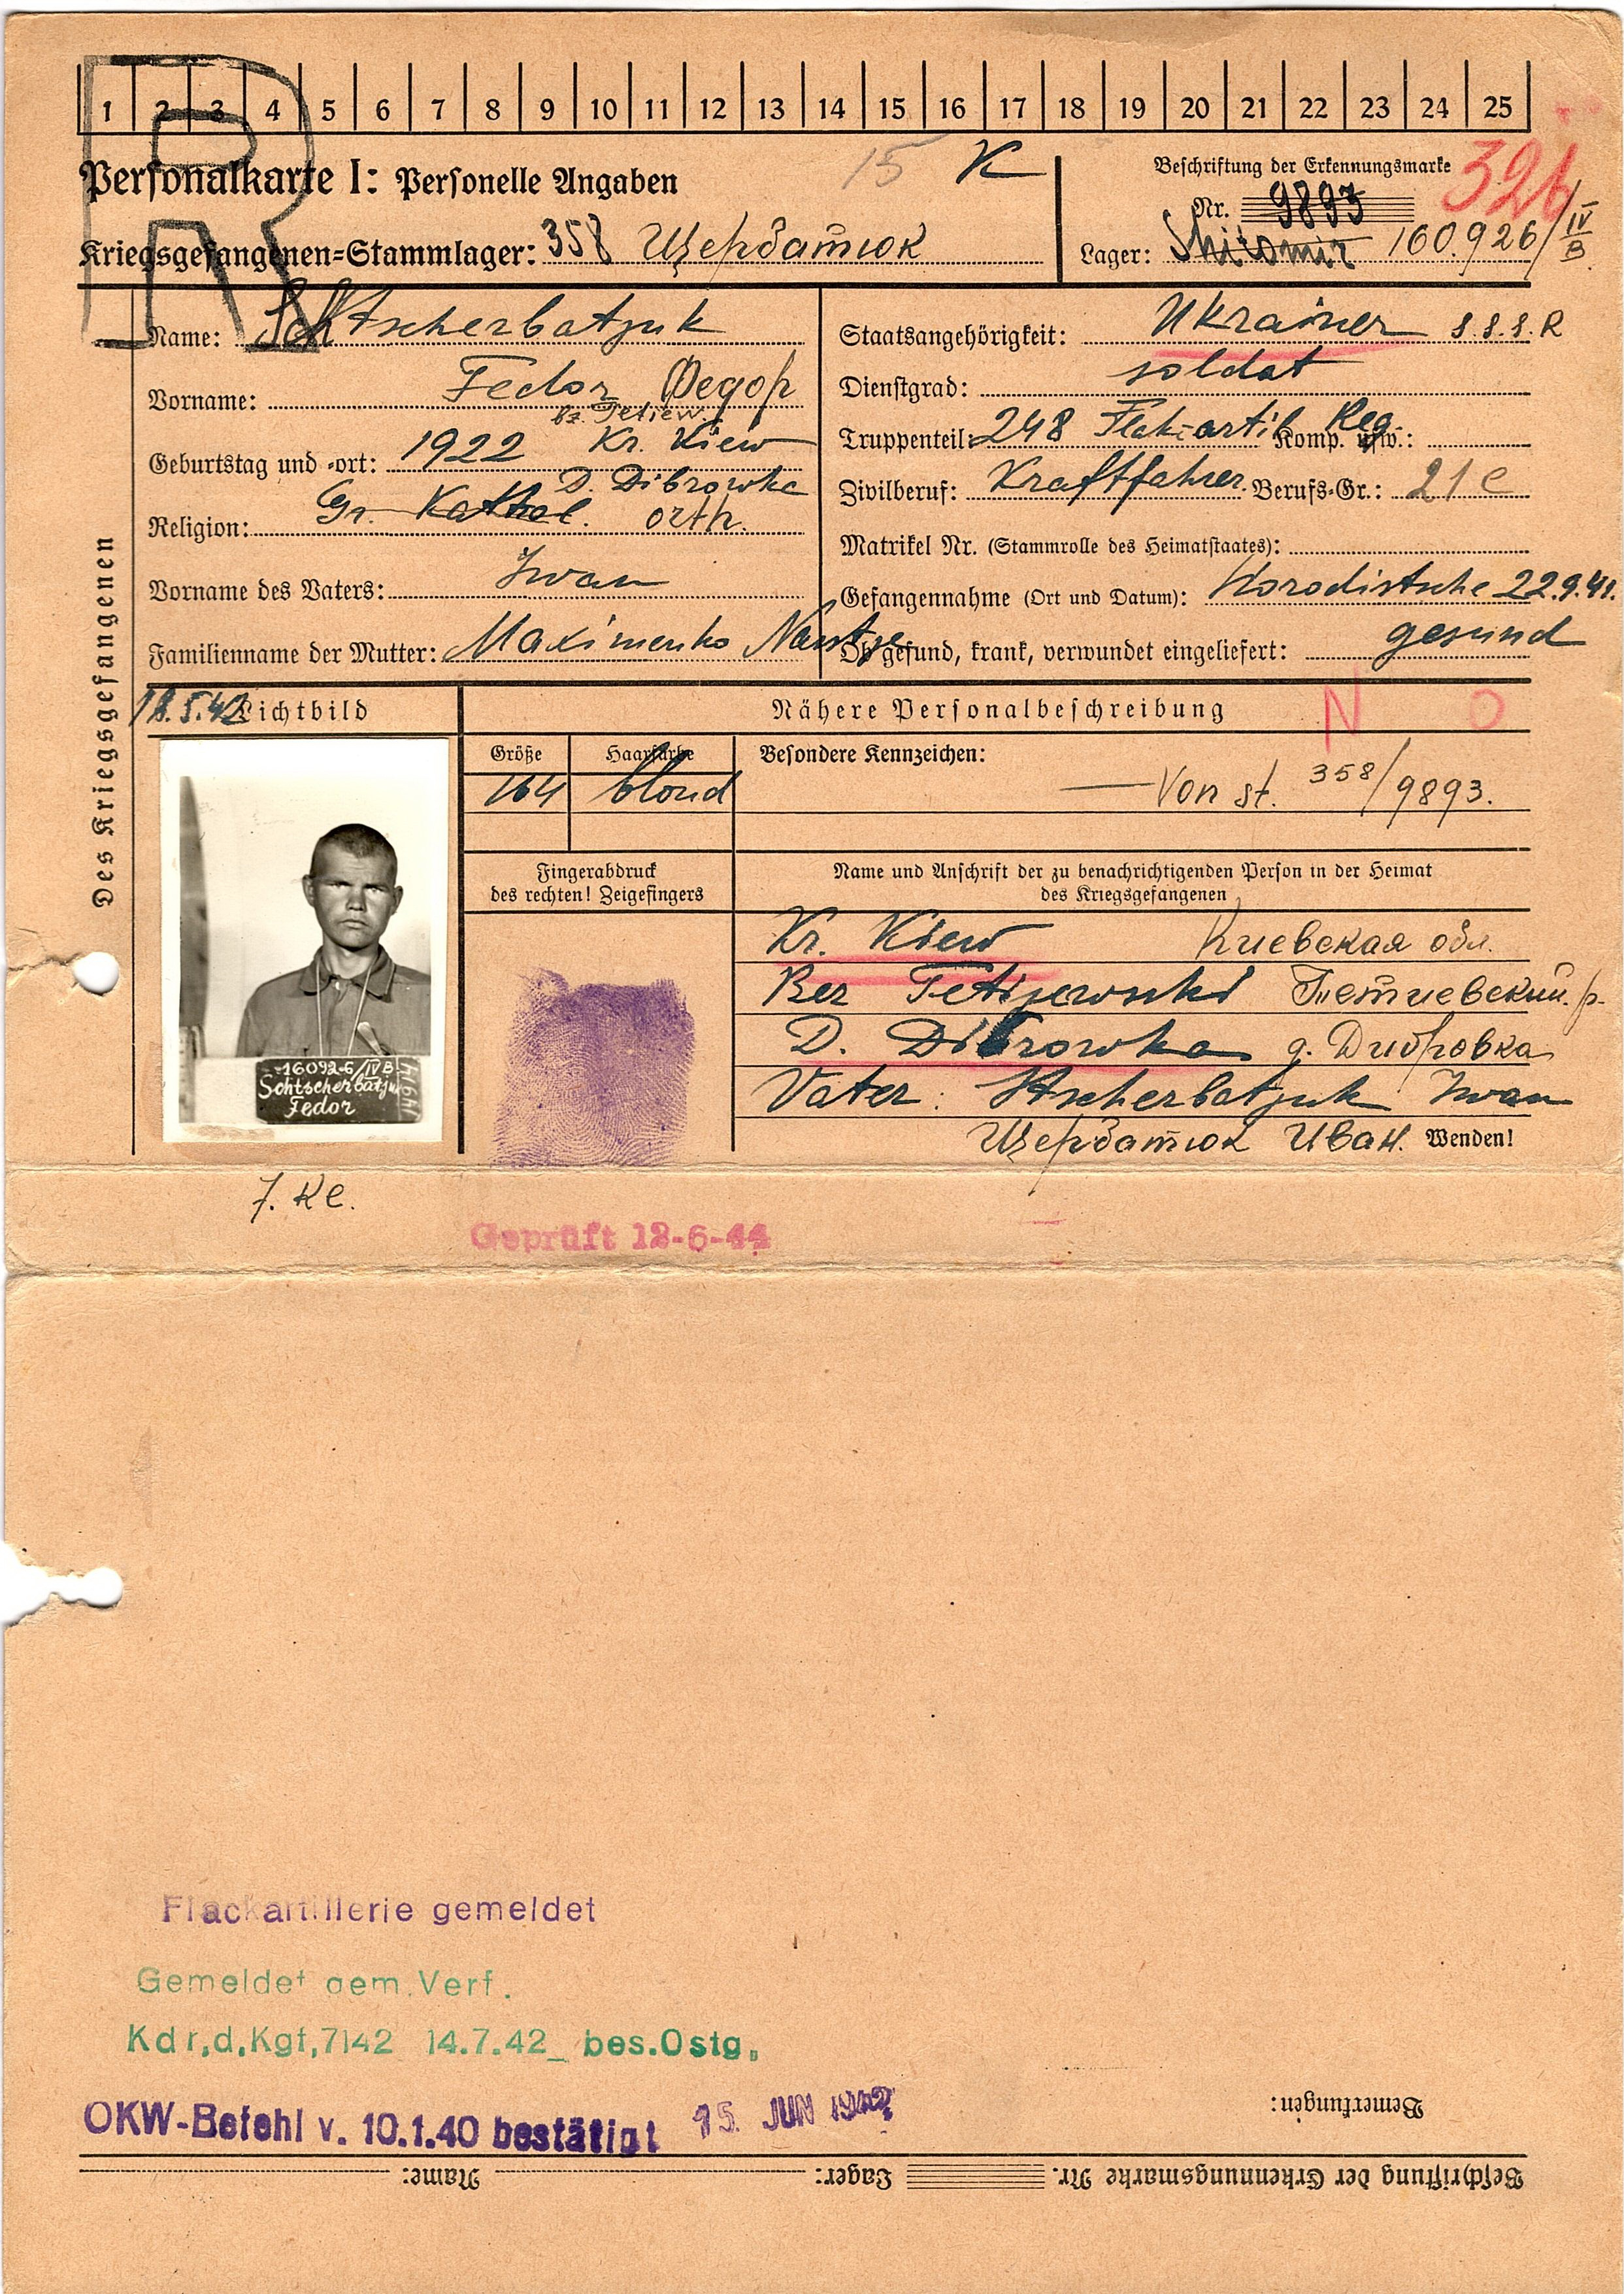 1 2 3 4 5 6 7 8 9 10 11 12 13 14 15 16 17 18 19 20 21 22 23 24 25
R
Personalkarte I: Personelle Angaben
15 K
Beschriftung der Erkennungsmarke
326
Nr. 9893
Kriegsgefangenen=Stammlager: 358 Щербатюк
Lager: Shitomir 160.926/IV B
Des Kriegsgefangenen
Name: Schtscherbatjuk
Vorname: Fedor Федор
bz. Tetiew.
Geburtstag und -ort: 1922 Kr. Kiew
D. Dibrowka
Religion: Gr. Kathol. orth.
Vorname des Vaters: Iwan
Familienname der Mutter: Maximenko
Staatsangehörigkeit: Ukrainer S.S.S.R
Dienstgrad: soldat
Truppenteil: 248 Flak-artil Reg. Komp. usw.:
Zivilberuf: Kraftfahrer. Berufs-Gr.: 21 e
Matrikel Nr. (Stammrolle des Heimatstaates):
Gefangennahme (Ort und Datum): Horodistsche 22.9.41.
Ob gesund, krank, verwundet eingeliefert: gesund
18.5.42 Lichtbild
Nähere Personalbeschreibung
N O
Größe Haarfarbe Besondere Kennzeichen:
164 blond
Von st. 358/9893.
Fingerabdruck
des rechten! Zeigefingers
Name und Anschrift der zu benachrichtigenden Person in der Heimat
des Kriegsgefangenen
Kr. Kiew Киевская обл.
Bez Tetijewski Тетиевский р.
D. Dibrowka д. Дибровка
Vater: Stscherbatjuk Iwan
Щербатюк Иван. Wenden!
16092-6/IV B
Schtscherbatju
Fedor
7. Kl.
Geprüft 12-6-44
Flackartillerie gemeldet
Gemeldet gem. Verf.
Kdr,d,Kgf,7142 14.7.42_ bes.Ostg.
OKW-Befehl v. 10.1.40 bestätigt 15. JUN 1942
Bemerkungen:
Beschriftung der Erkennungsmarke Nr. Lager: Name: